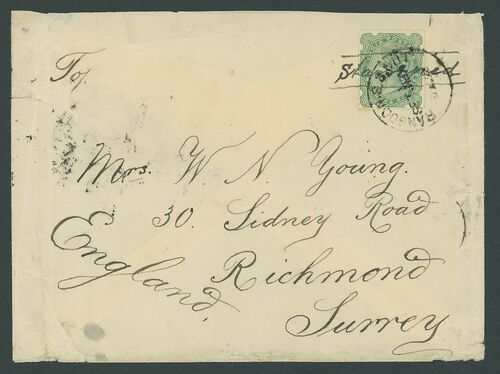 To,
Mrs. W. N. Young.
30. Sidney Road
Richmond
Surrey
England.